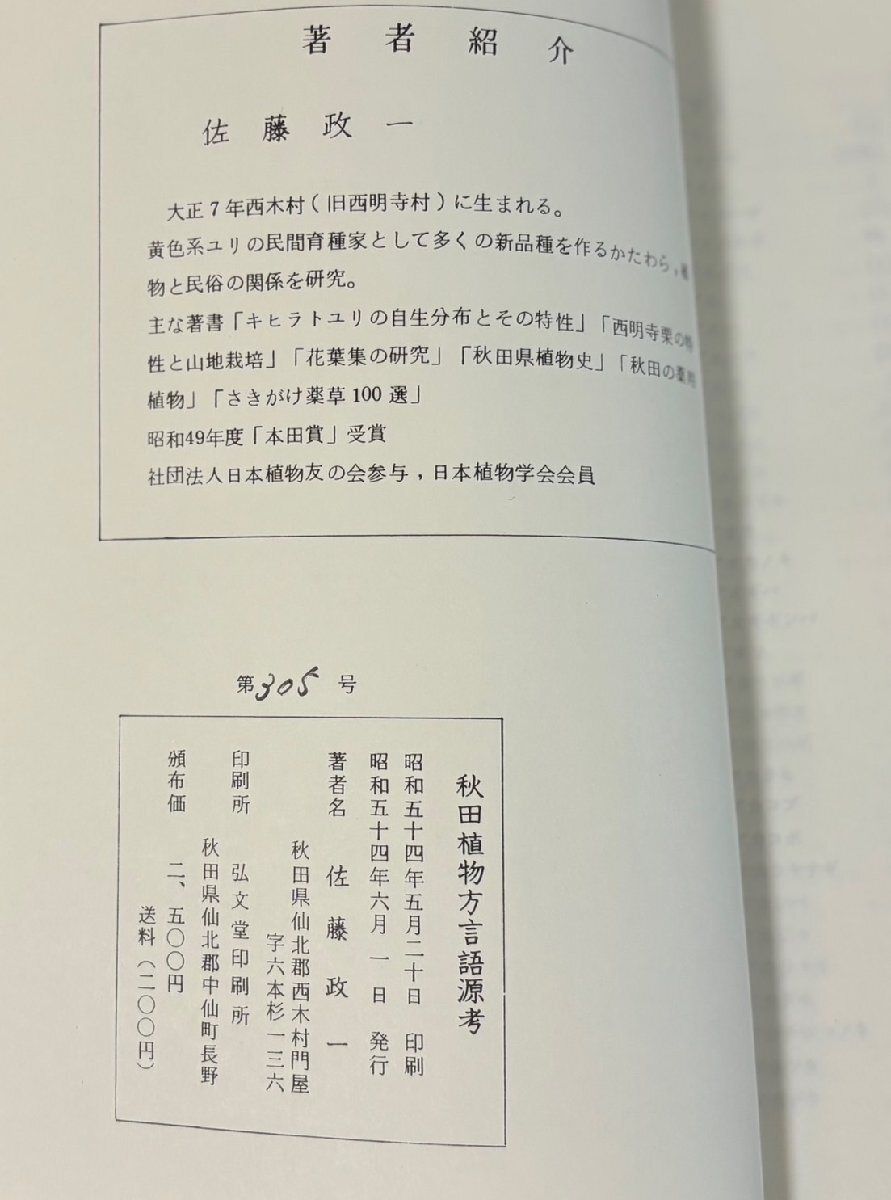 著者紹介
佐藤政一
大正7年西木村(旧西明寺村)に生まれる。
黄色系ユリの民間育種家として多くの新品種を作るかたわら,植
物と民俗の関係を研究。
主な著書「キヒラトユリの自生分布とその特性」「西明寺栗の特
性と山地栽培」「花葉集の研究」「秋田県植物史」「秋田の薬用
植物」「さきがけ薬草100選」
昭和49年度「本田賞」受賞
社団法人日本植物友の会参与,日本植物学会会員
第305号
秋田植物方言語源考
昭和五十四年五月二十日 印刷
昭和五十四年六月一日 発行
著者名 佐藤政一
秋田県仙北郡西木村門屋
字六本杉一三六
印刷所 弘文堂印刷所
秋田県仙北郡中仙町長野
頒布価 二、五〇〇円
送料(二〇〇円)